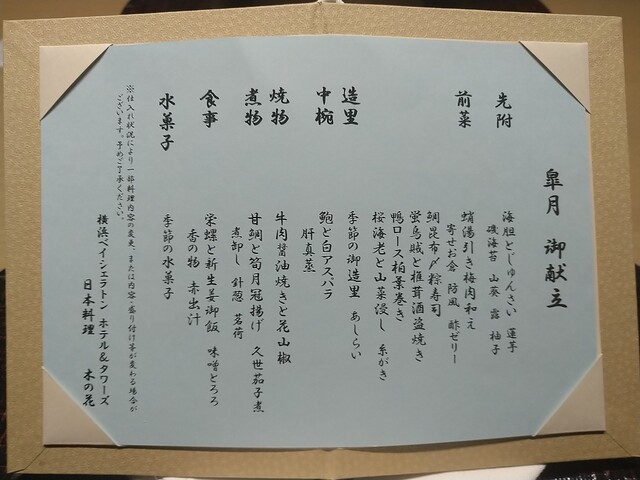 皐月 御献立
先附
海胆とじゅんさい 蓮芋
磯海苔 山葵 露 柚子
前菜
蛸湯引き梅肉和え
寄せお倉 防風 酢ゼリー
鯛昆布〆粽寿司
蛍烏賊と椎茸酒盗焼き
鴨ロース柏葉巻き
桜海老と山菜浸し 糸がき
造里
季節の御造里 あしらい
中椀
鮑と白アスパラ
肝真薯
焼物
牛肉醤油焼きと花山椒
煮物
甘鯛と筍月冠揚げ 久世茄子煮
煮卸し 針葱 茗荷
食事
栄螺と新生姜御飯 味噌とろろ
香の物 赤出汁
水菓子
季節の水菓子
※仕入れ状況により一部料理内容の変更、または内容・盛り付け等が変わる場合が
ございます。予めご了承ください。
横浜ベイシェラトン ホテル&タワーズ
日本料理 木の花